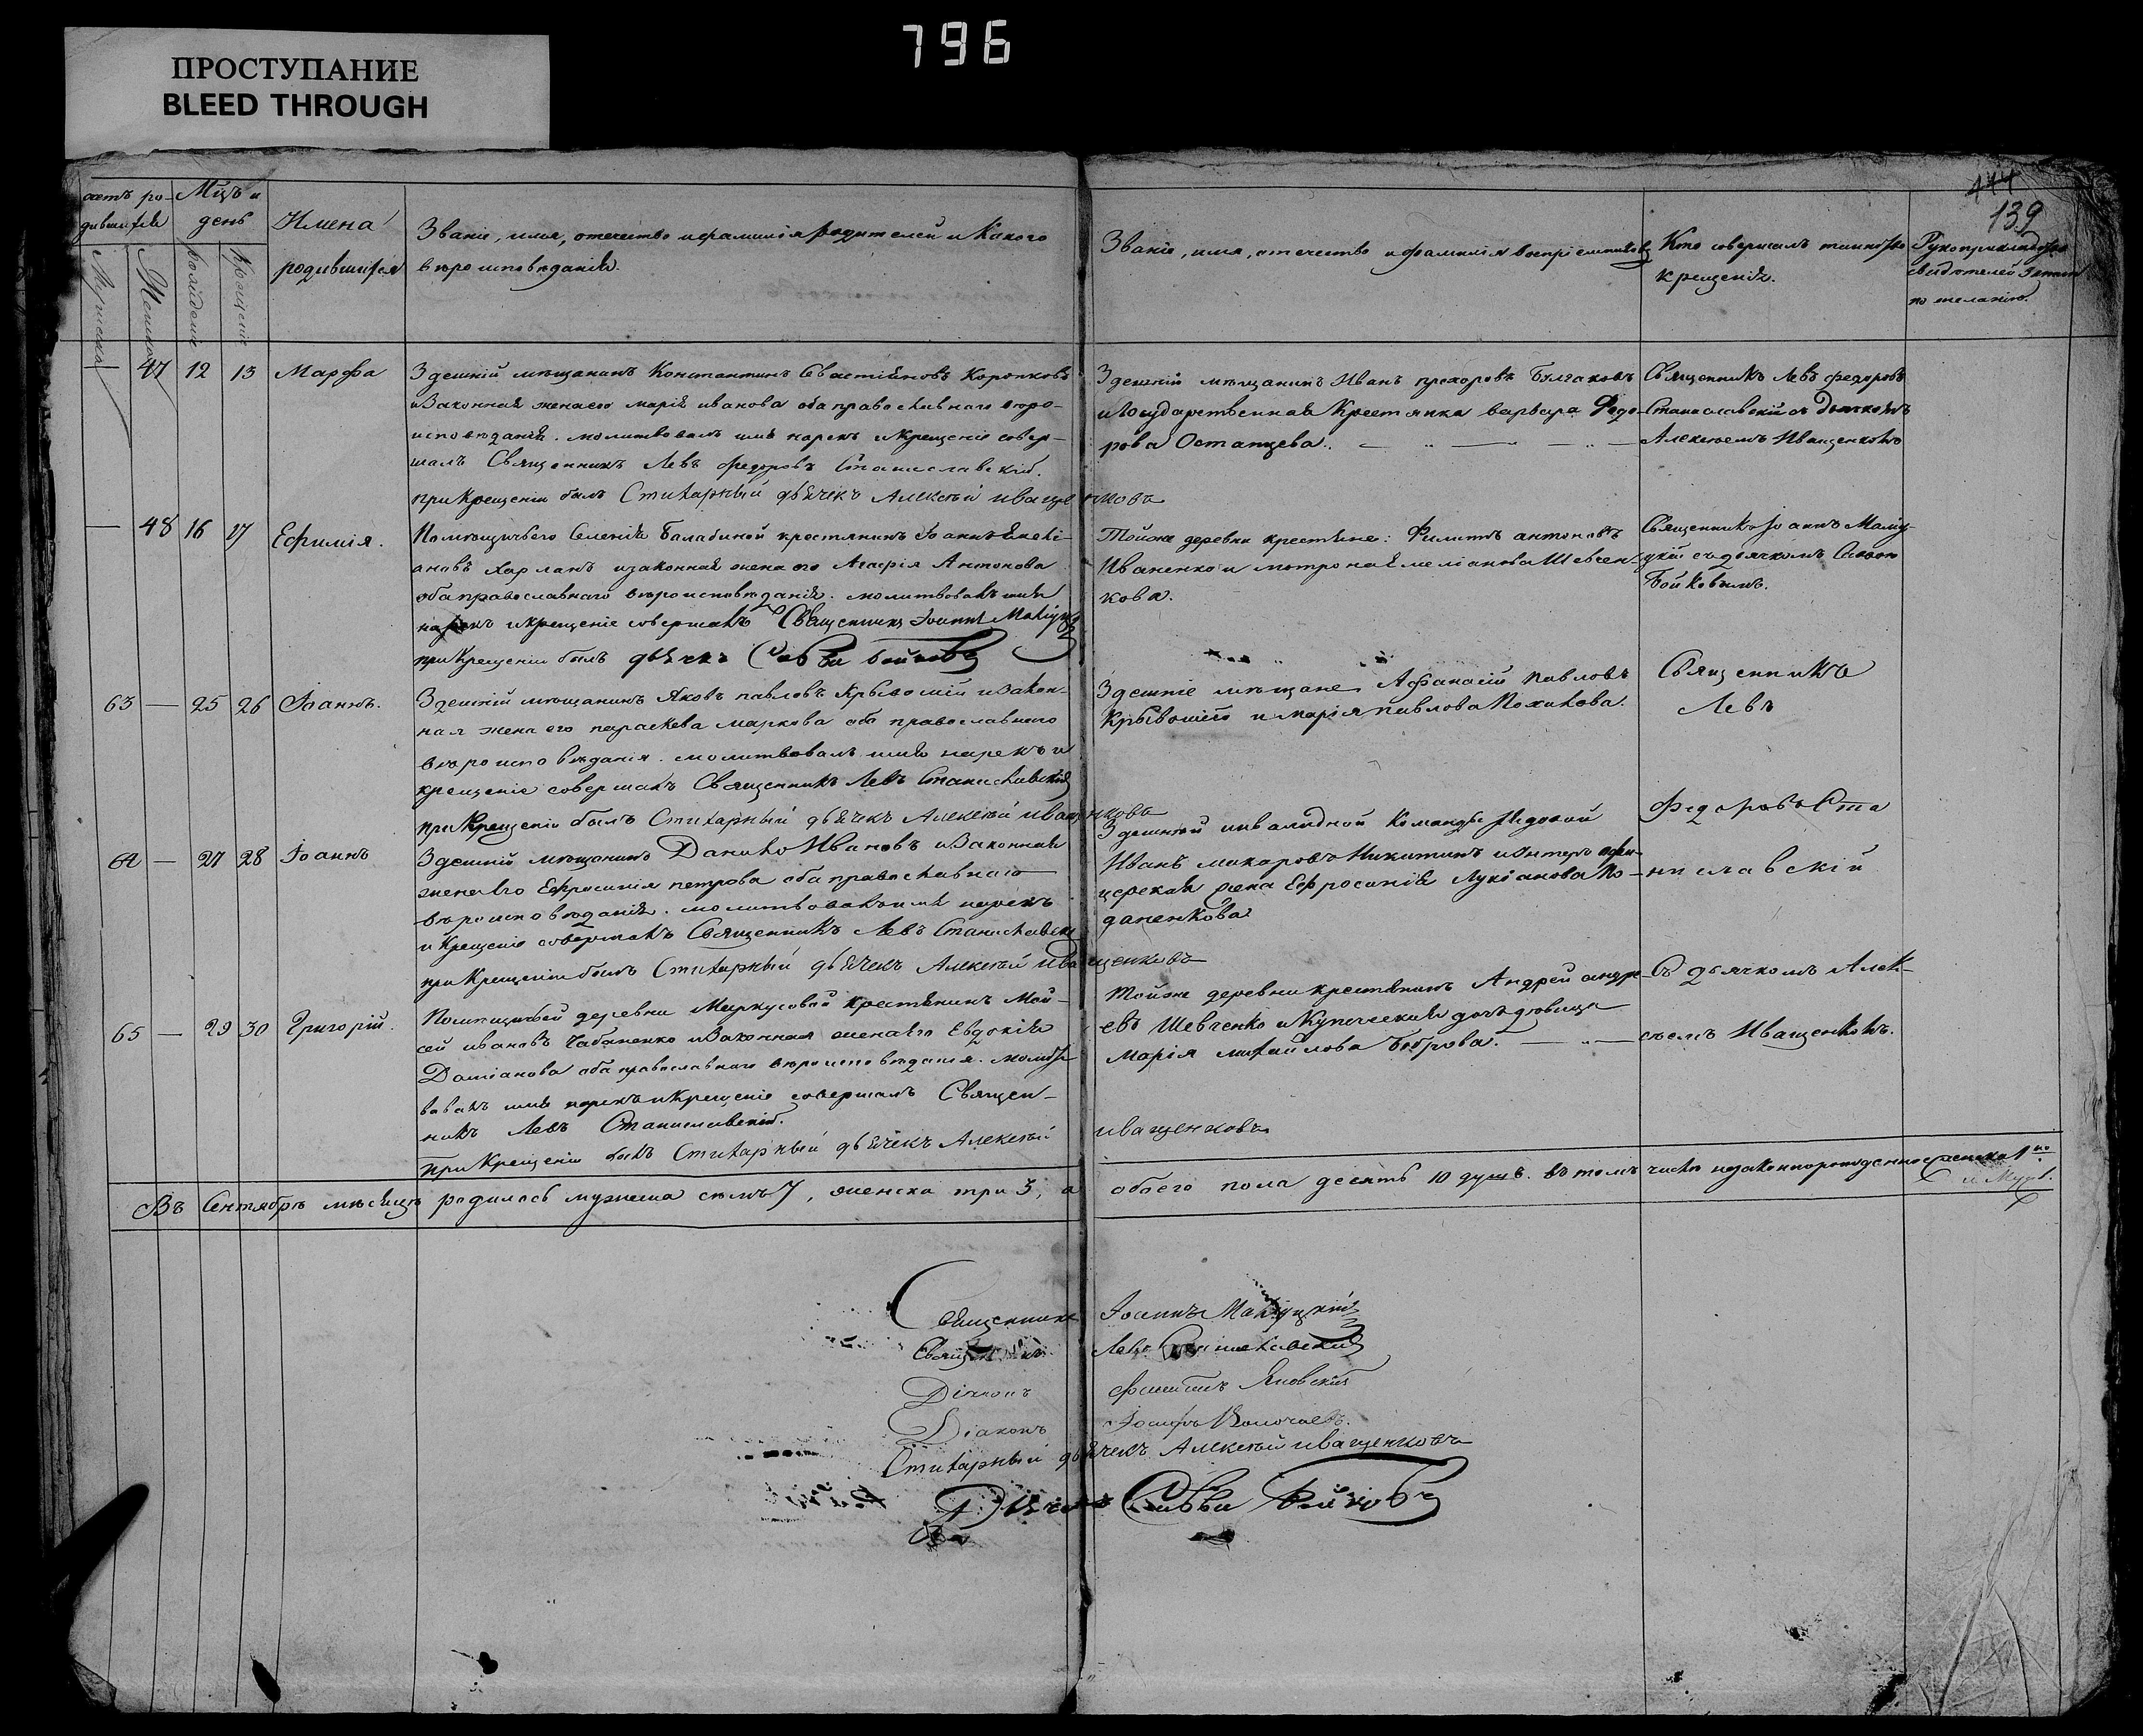 796
ПРОСТУПАНИЕ
BLEED THROUGH
139
Мцъ и
день
Имена
родившихся
Званіе, имя, отечество и фамилія родителей и Какого
вѣроисповѣданія.
Званіе, имя, отечество и фамилія воспріемниковъ
Кто совершалъ таинство
крещенія.
Рукоприкладство
свидѣтелей
по желанію.
— 47 12 13 Марфа
Здешній мѣщанинъ Константинъ Коропковъ
и Законная жена его марія иванова оба православнаго вѣро-
исповѣданія. молитвовалъ имя нарекъ и Крещеніе совер-
шалъ Священникъ Левъ Федоровъ Станиславскій.
при Крещеніи былъ Стихарный дьячекъ Алексѣй иващенковъ
Здешній мѣщанинъ Иванъ прохоровъ Булгаковъ
и Государственная Крестьянка варвара Федо-
рова Остапцева.
Священникъ Левъ Федоровъ
Станиславскій съ дьячкомъ
Алексѣемъ Иващенковъ
— 48 16 17 Ефимія.
Помѣщичьего Селенія Балабиной крестянинъ Іоаннъ
ановъ Харланъ и законная жена его Агафія Антонова
оба православнаго вѣроисповѣданія. молитвовалъ имя
нарекъ и крещеніе совершалъ Священникъ Іоаннъ
при Крещеніи былъ дьячекъ Савва Бойковъ
Тойже деревни крестьяне: Филипъ антоновъ
Иваненко и мотрона Емеліанова Шевчен-
кова.
Священникъ Іоаннъ
съ дьячкомъ Саввою
Бойковымъ.
63 — 25 26 Іоаннъ.
Здешній мѣщанинъ Яковъ павловъ Крывошій и Закон-
ная жена его параскева маркова оба православнаго
вѣроисповѣданія. молитвовалъ имя нарекъ и
крещеніе совершалъ Священникъ Левъ Станиславскій
при Крещеніи былъ Стихарный дьячекъ Алексѣй иващенковъ
Здешніе мѣщане Афанасій Павловъ
Крывошій и марія павлова
Священникъ
Левъ
64 — 27 28 Іоаннъ
Здешній мѣщанинъ Данило Ивановъ и Законная
жена его Ефросинія петрова оба православнаго
вѣроисповѣданія. молитвовалъ имя нарекъ
и Крещеніе совершалъ Священникъ Левъ Станиславскій
при Крещеніи былъ Стихарный дьячекъ Алексѣй иващенковъ
Здешней инвалидной Команды рядовой
Иванъ макаровъ Никитинъ и Унтеръ офи-
церская жена Ефросинія Лукіанова По-
даненкова
Федоровъ Ста
ниславскій
65 — 29 30 Григорій.
Помѣщичьей деревни Маркусовой крестянинъ Мои-
сей ивановъ Чабаненко и Законная жена его Евдокія
Даміанова оба православнаго вѣроисповѣданія. молит
вовалъ имя нарекъ и Крещеніе совершалъ Священ-
никъ Левъ Станиславскій.
при Крещеніи былъ Стихарный дьячекъ Алексѣй иващенковъ
Тойже деревни крестянинъ Андрей андре-
евъ Шевченко и Купеческая дочь дѣвица
Марія михайлова Боброва.
Съ дьячкомъ Алек-
сѣемъ Иващенковъ.
Въ Сентябрѣ мѣсяцѣ родилось мужеска семъ 7, женска три 3, а обоего пола десять 10 душъ. въ томъ числѣ незаконнорожденно женска 1
Священникъ Іоаннъ
Священникъ Левъ Станиславскій
Діаконъ Филипъ Яновскій
Діаконъ Іосифъ
Стихарный дьячекъ Алексѣй иващенковъ
Дьячекъ Савва Бойковъ